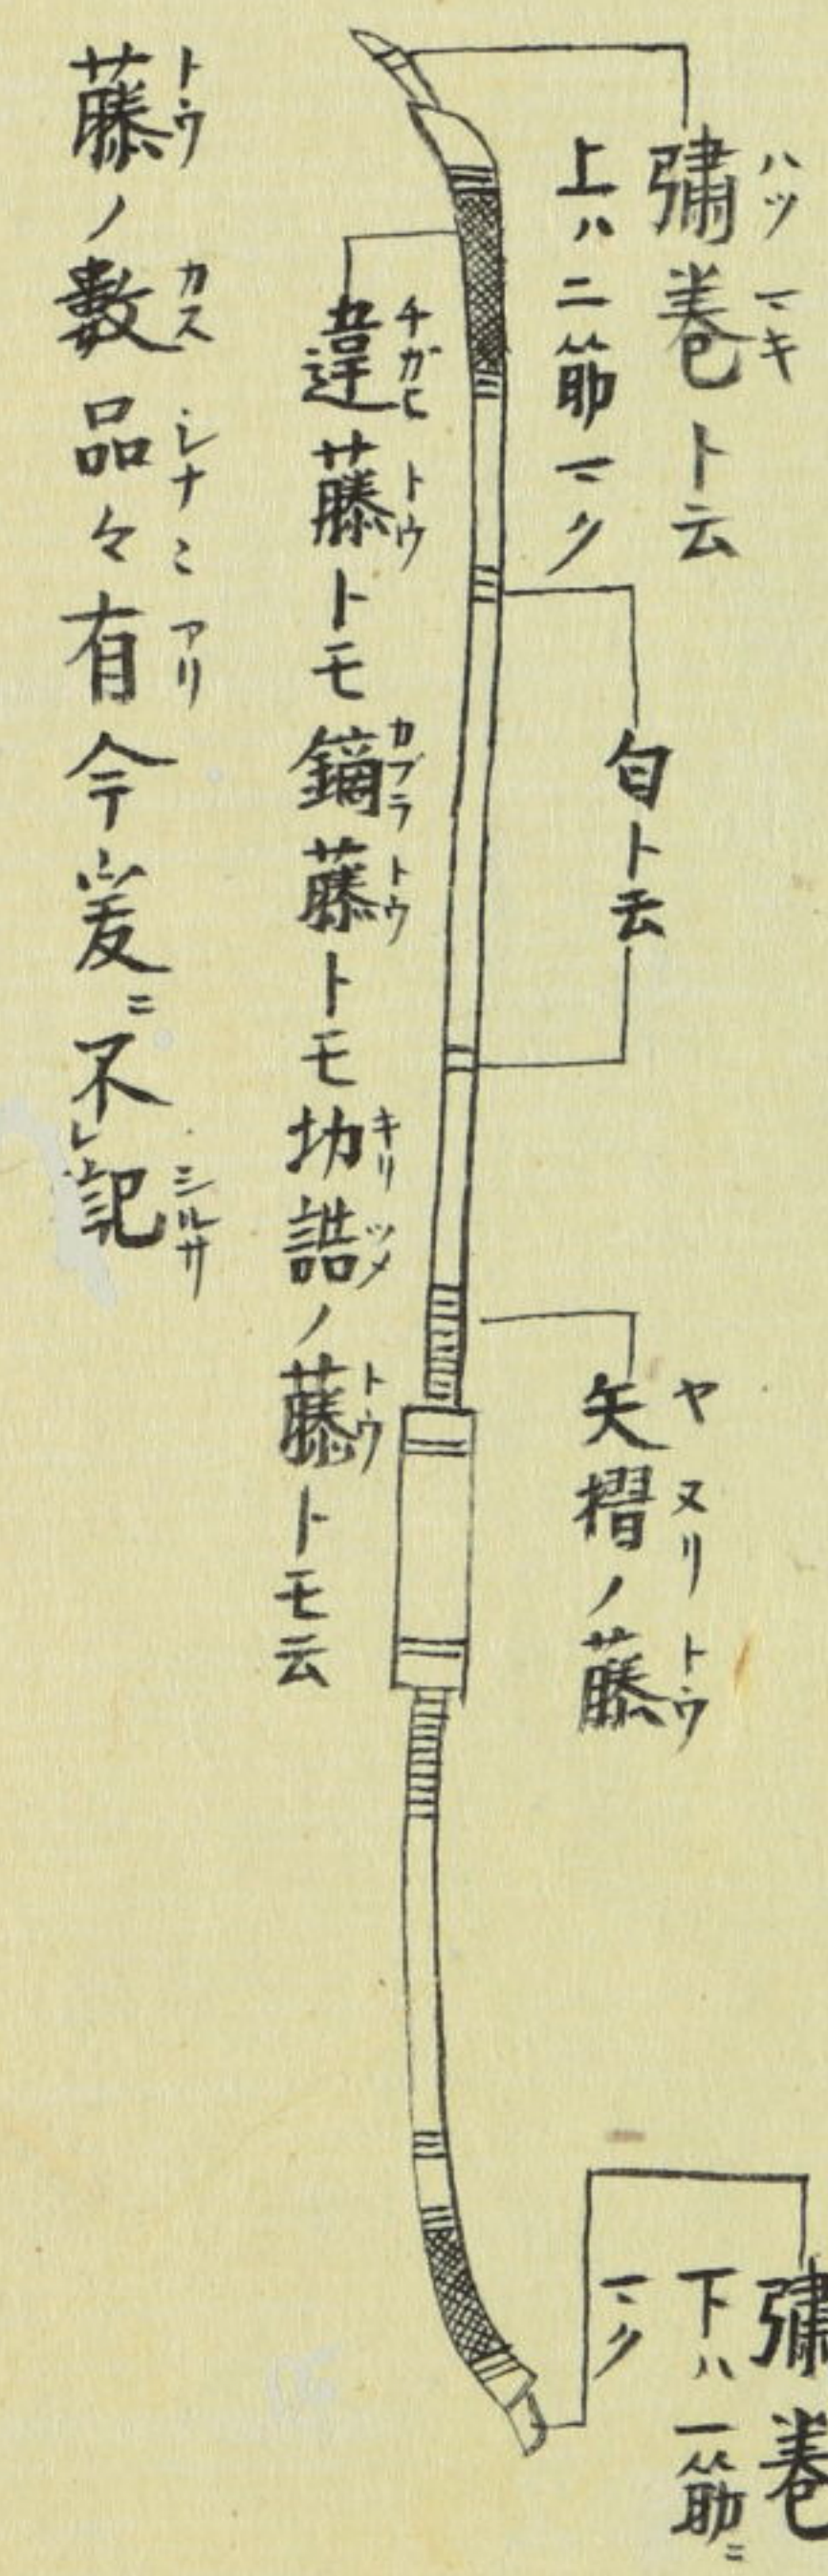 彇巻ト云
ハツマキ
上ハ二筋マク
匂ト云
矢摺ノ藤
ヤヌリトウ
違藤トモ鏑藤トモ切詰ノ藤トモ云
チガヒトウ カブラトウ キリツメ トウ
藤ノ數品々有今爰ニ不レ記
トウ カス シナミ アリ シルサ
彇巻
下ハ一筋ニ
マク